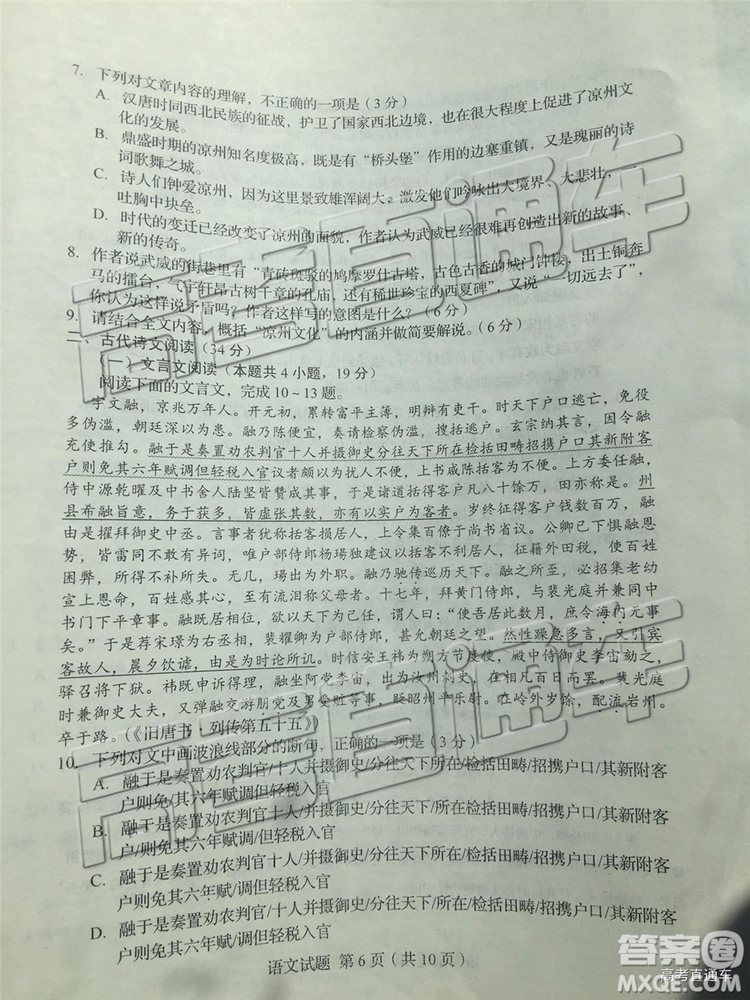 7. 下列对文章内容的理解，不正确的一项是(3分)
A. 汉唐时同西北民族的征战，护卫了国家西北边境，也在很大程度上促进了凉州文
化的发展。
B. 鼎盛时期的凉州知名度极高，既是有“桥头堡”作用的边塞重镇，又是瑰丽的诗
词歌舞之城。
C. 诗人们钟爱凉州，因为这里景致雄浑阔大，激发他们吟咏出大境界、大悲壮，一
吐胸中块垒。
D. 时代的变迁已经改变了凉州的面貌，作者认为武威已经很难再创造出新的故事、
新的传奇。
8. 作者说武威的街巷里有“青砖斑驳的鸠摩罗什古塔，古色古香的城门钟楼，出土铜奔
马的擂台，气宇轩昂古树千章的孔庙，还有稀世珍宝的西夏碑”，又说“一切远去了”，
你认为这样说矛盾吗？作者这样写的意图是什么？(6分)
9. 请结合全文内容，概括“凉州文化”的内涵并做简要解说。(6分)
二、古代诗文阅读(34分)
(一)文言文阅读(本题共4小题，19分)
阅读下面的文言文，完成10～13题。
宇文融，京兆万年人。开元初，累转富平主簿，明辩有吏干。时天下户口逃亡，免役
多伪滥，朝廷深以为患。融乃陈便宜，奏请检察伪滥，搜括逃户。玄宗纳其言，因令融
充使推勾。融于是奏置劝农判官十人并摄御史分往天下所在检括田畴招携户口其新附客
户则免其六年赋调但轻税入官议者颇以为扰人不便，上书咸陈括客为不便。上方委任融，
侍中源乾曜及中书舍人陆坚皆赞成其事，于是诸道括得客户凡八十余万，田亦称是。州
县希融旨意，务于获多，皆虚张其数，亦有以实户为客者。岁终征得客户钱数百万，融
由是擢拜御史中丞。言事者犹称括客损居人，上令集百僚于尚书省议。公卿已下惧融恩
势，皆雷同不敢有异词，唯户部侍郎杨玚独建议以括客不利居人，征籍外田税，使百姓
困弊，所得不补所失。无几，玚出为外职。融乃驰传巡历天下，所至必招集老幼
宣上恩命，百姓感其心，至有流泪称父母者。十七年，拜黄门侍郎，与裴光庭并兼中
书门下平章事。融既居相位，欲以天下为己任，谓人曰：“使吾居此数月，庶令海内无事
矣。”于是荐宋璟为右丞相，裴耀卿为户部侍郎，甚允朝廷之望。然性躁急多言，又引宾
客故人，晨夕饮谑，由是为时论所讥。时信安王祎为朔方节度使，殿中侍御史李宙劾之，
驿召将下狱。祎既申诉得理，融坐阿党李宙，出为汝州刺史，在相凡百日而罢。裴光庭
时兼御史大夫，又弹融交游朋党及男受赃等事，贬昭州平乐尉。在岭外岁馀，配流岩州。
卒于路。(《旧唐书·列传第五十五》)
10. 下列对文中画波浪线部分的断句，正确的一项是(3分)
A. 融于是奏置劝农判官/十人并摄御史/分往天下/所在检括田畴/招携户口/其新附客
户则免/其六年赋调但轻税入官
B. 融于是奏置劝农判官十人/并摄御史/分往天下/所在检括田畴/招携户口/其新附客
户/则免其六年赋调/但轻税入官
C. 融于是奏置劝农判官十人/并摄御史/分往天下所在/检括田畴/招携户口/其新附客
户则免其六年赋/调但轻税入官
D. 融于是奏置劝农判官/十人并摄御史/分往天下所在/检括田畴/招携户口/其新附客
户则免其六年赋调/但轻税入官
语文试题 第6页(共10页)
高考直通车
答案圈
MXQE.COM
高考直通车